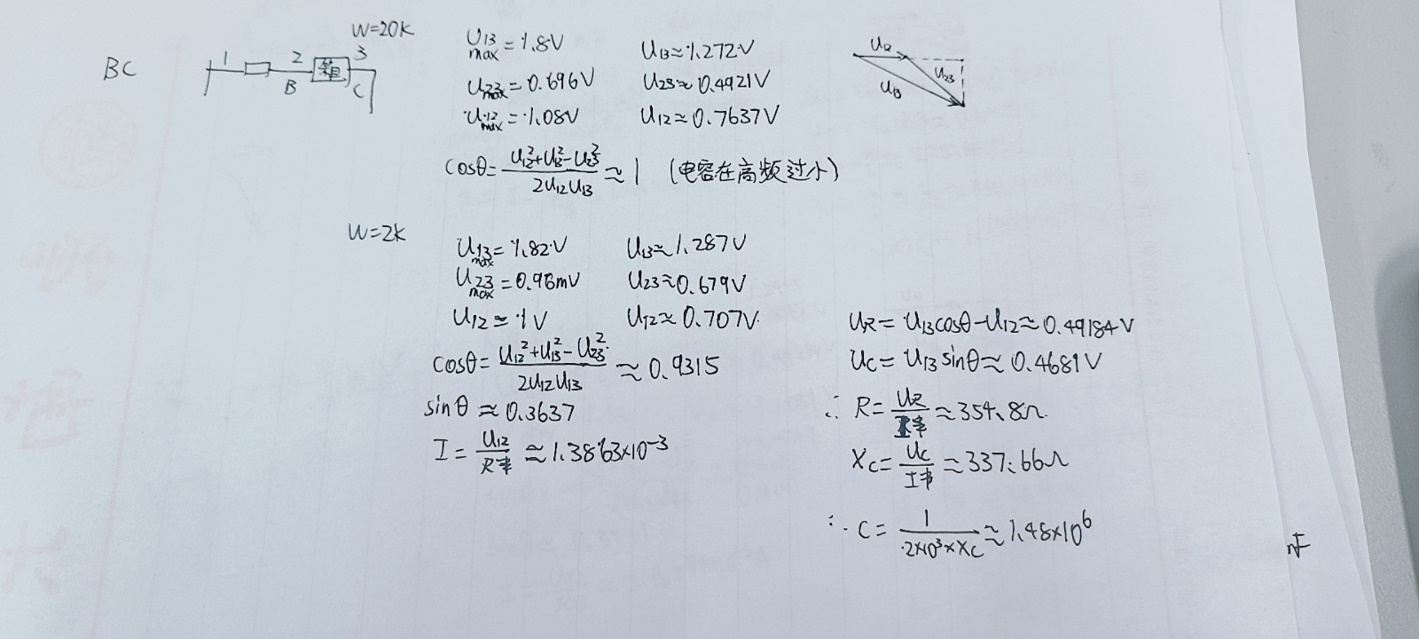 BC 1 2 B 菜 3 C W=20K
U13max=1.8V U13≈1.272V
U23max=0.696V U23≈0.4921V
U12max=1.08V U12≈0.7637V
U12 U23 U13
cosθ=(U12²+U13²-U23²)/(2U12U13)≈1 (电容在高频过小)
W=2K
U13max=1.82V U13≈1.287V
U23max=0.96mV U23≈0.679V
U12≈1V U12≈0.707V
cosθ=(U12²+U13²-U23²)/(2U12U13)≈0.9315
sinθ≈0.3637
I=U12/R串≈1.3863×10⁻³
UR=U13cosθ-U12≈0.49184V
UC=U13sinθ≈0.4681V
∴R=UR/I串≈354.8Ω
XC=UC/I串≈337.66Ω
∴C=1/(2×10³×XC)≈1.48×10⁶
nF